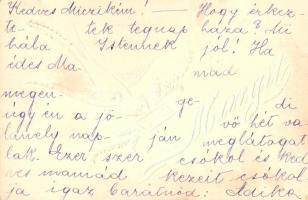 Kedves Miczikém! — Hogy érkez-
te- tek tegnap haza? Mi
hála Istennek jól! Ha
édes Ma- mád
megen- ge- di
úgy én a jö- vő hét va-
lamely nap- ján meglátogat
lak. Ezer szer csókol és ked
ves mamád kezeit csókol
ja igaz barátnőd: Adika